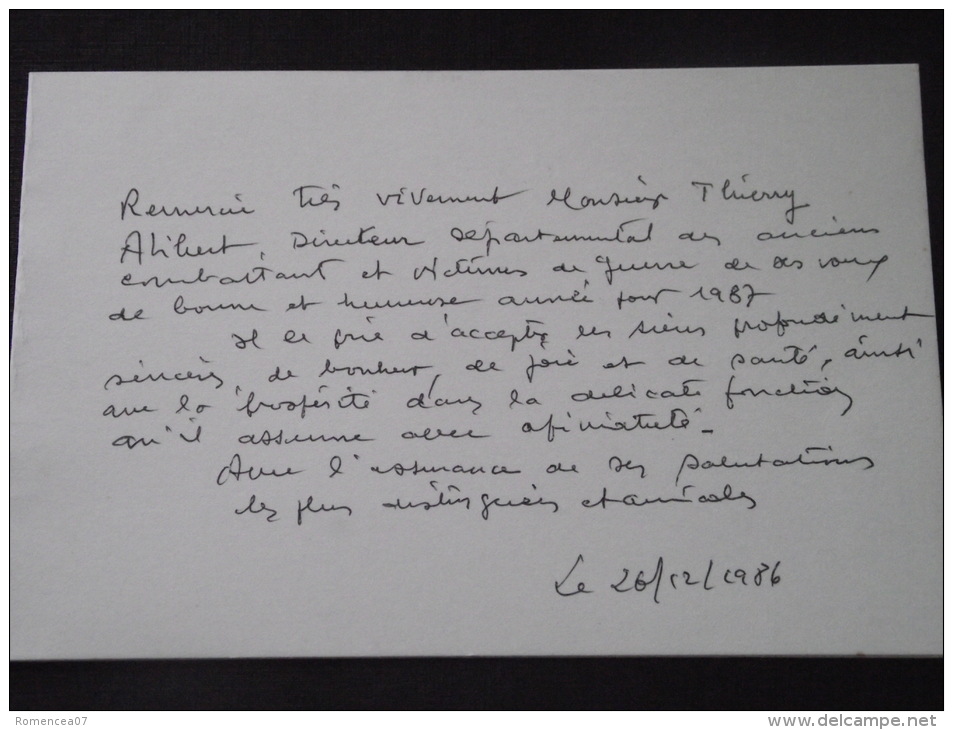 Remercie très vivement Monsieur Thierry
Alibert, Directeur départemental des anciens
combattant et victimes de guerre de ses voeux
de bonne et heureuse année pour 1987
Il le prie d'accepter les siens profondément
sincères, de bonheur, de joie et de santé, ainsi
que la prospérité dans la délicate fonction
qu'il assume avec
Avec l'assurance de ses salutations
les plus distinguées et amicales
Le 26/12/1986
Romencea07
www.delcampe.net